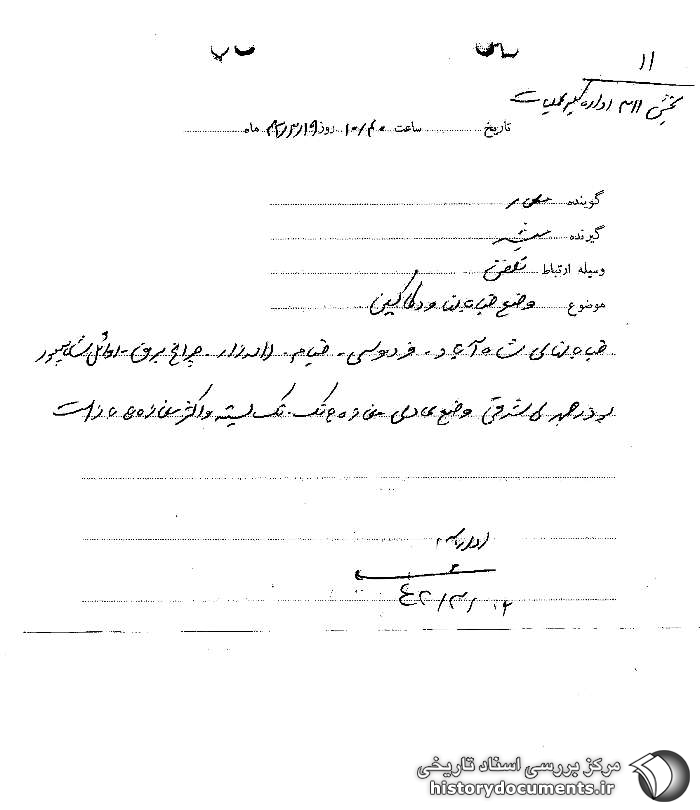 ۱۱
بخش ۳۱۱ اداره کل عملیات
تاریخ ساعت ۱۰/۴۰ روز ۴۲/۳/۱۹ ماه
گوینده
گیرنده
وسیله ارتباط تلفن
موضوع وضع خیابان و دکاکین
خیابانهای شاه آباد - فردوسی - خیام - لاله‌زار - چراغ برق - اوائل شاهپور
بوذرجمهری شرقی وضع عادی مغازه‌ها تک تک بسته و اکثر مغازه‌ها باز است
مرکز بررسی اسناد تاریخی
historydocuments.ir